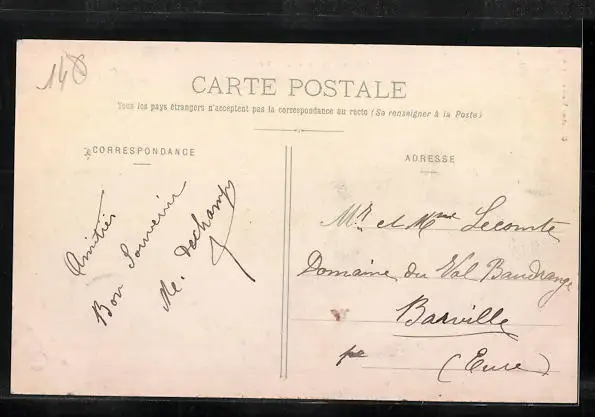 148
CARTE POSTALE
Tous les pays étrangers n'acceptent pas la correspondance au recto (Se renseigner à la Poste)
CORRESPONDANCE
Amitiés
Bon Souvenir
Me. Dechamp
ADRESSE
Mr et Mme Lecomte
Domaine du Val Baudrange
Barville
(Eure)